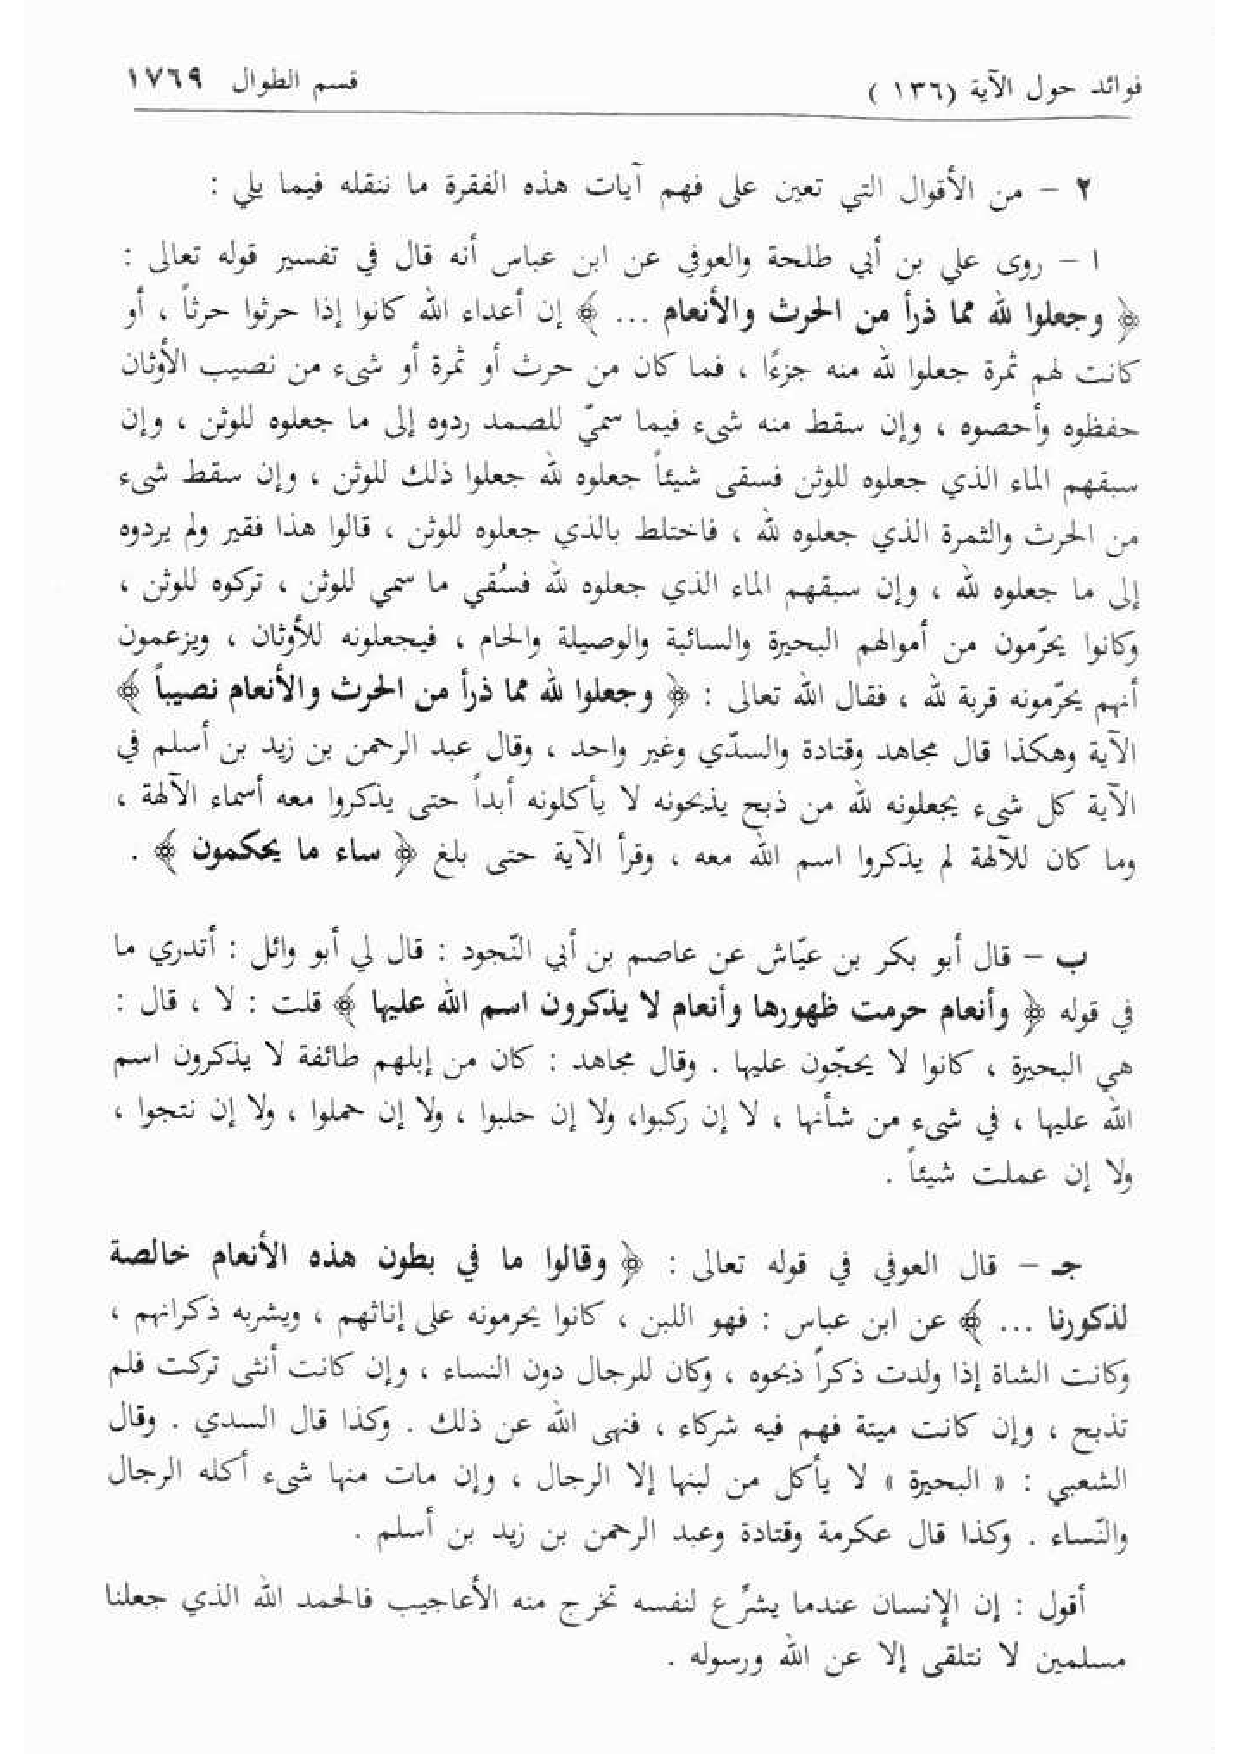 فوائد حول الآية (١٣٦) قسم الطوال ١٧٦٩
٢ - من الأقوال التي تعين على فهم آيات هذه الفقرة ما ننقله فيما يلي :
ا - روى علي بن أبي طلحة والعوفي عن ابن عباس أنه قال في تفسير قوله تعالى :
﴿ وجعلوا لله مما ذرأ من الحرث والأنعام ... ﴾ إن أعداء الله كانوا إذا حرثوا حرثاً ، أو
كانت لهم ثمرة جعلوا لله منه جزءًا ، فما كان من حرث أو ثمرة أو شىء من نصيب الأوثان
حفظوه وأحصوه ، وإن سقط منه شىء فيما سميّ للصمد ردوه إلى ما جعلوه للوثن ، وإن
سبقهم الماء الذي جعلوه للوثن فسقى شيئاً جعلوه لله جعلوا ذلك للوثن ، وإن سقط شىء
من الحرث والثمرة الذي جعلوه لله ، فاختلط بالذي جعلوه للوثن ، قالوا هذا فقير ولم يردوه
إلى ما جعلوه لله ، وإن سبقهم الماء الذي جعلوه لله فسُقي ما سمي للوثن ، تركوه للوثن ،
وكانوا يحرّمون من أموالهم البحيرة والسائبة والوصيلة والحام ، فيجعلونه للأوثان ، ويزعمون
أنهم يحرّمونه قربة لله ، فقال الله تعالى : ﴿ وجعلوا لله مما ذرأ من الحرث والأنعام نصيباً ﴾
الآية وهكذا قال مجاهد وقتادة والسدّي وغير واحد ، وقال عبد الرحمن بن زيد بن أسلم في
الآية كل شىء يجعلونه لله من ذبح يذبحونه لا يأكلونه أبداً حتى يذكروا معه أسماء الآلهة ،
وما كان للآلهة لم يذكروا اسم الله معه ، وقرأ الآية حتى بلغ ﴿ ساء ما يحكمون ﴾ .
ب - قال أبو بكر بن عيّاش عن عاصم بن أبي النّجود : قال لي أبو وائل : أتدري ما
في قوله ﴿ وأنعام حرمت ظهورها وأنعام لا يذكرون اسم الله عليها ﴾ قلت : لا ، قال :
هي البحيرة ، كانوا لا يحجّون عليها . وقال مجاهد : كان من إبلهم طائفة لا يذكرون اسم
الله عليها ، في شىء من شأنها ، لا إن ركبوا، ولا إن حلبوا ، ولا إن حملوا ، ولا إن نتجوا ،
ولا إن عملت شيئاً .
جـ - قال العوفي في قوله تعالى : ﴿ وقالوا ما في بطون هذه الأنعام خالصة
لذكورنا ... ﴾ عن ابن عباس : فهو اللبن ، كانوا يحرمونه على إناثهم ، ويشربه ذكرانهم ،
وكانت الشاة إذا ولدت ذكراً ذبحوه ، وكان للرجال دون النساء ، وإن كانت أنثى تركت فلم
تذبح ، وإن كانت ميتة فهم فيه شركاء ، فنهى الله عن ذلك . وكذا قال السدي . وقال
الشعبي : « البحيرة » لا يأكل من لبنها إلا الرجال ، وإن مات منها شىء أكله الرجال
والنّساء . وكذا قال عكرمة وقتادة وعبد الرحمن بن زيد بن أسلم .
أقول : إن الإنسان عندما يشرِّع لنفسه تخرج منه الأعاجيب فالحمد الله الذي جعلنا
مسلمين لا نتلقى إلا عن الله ورسوله .